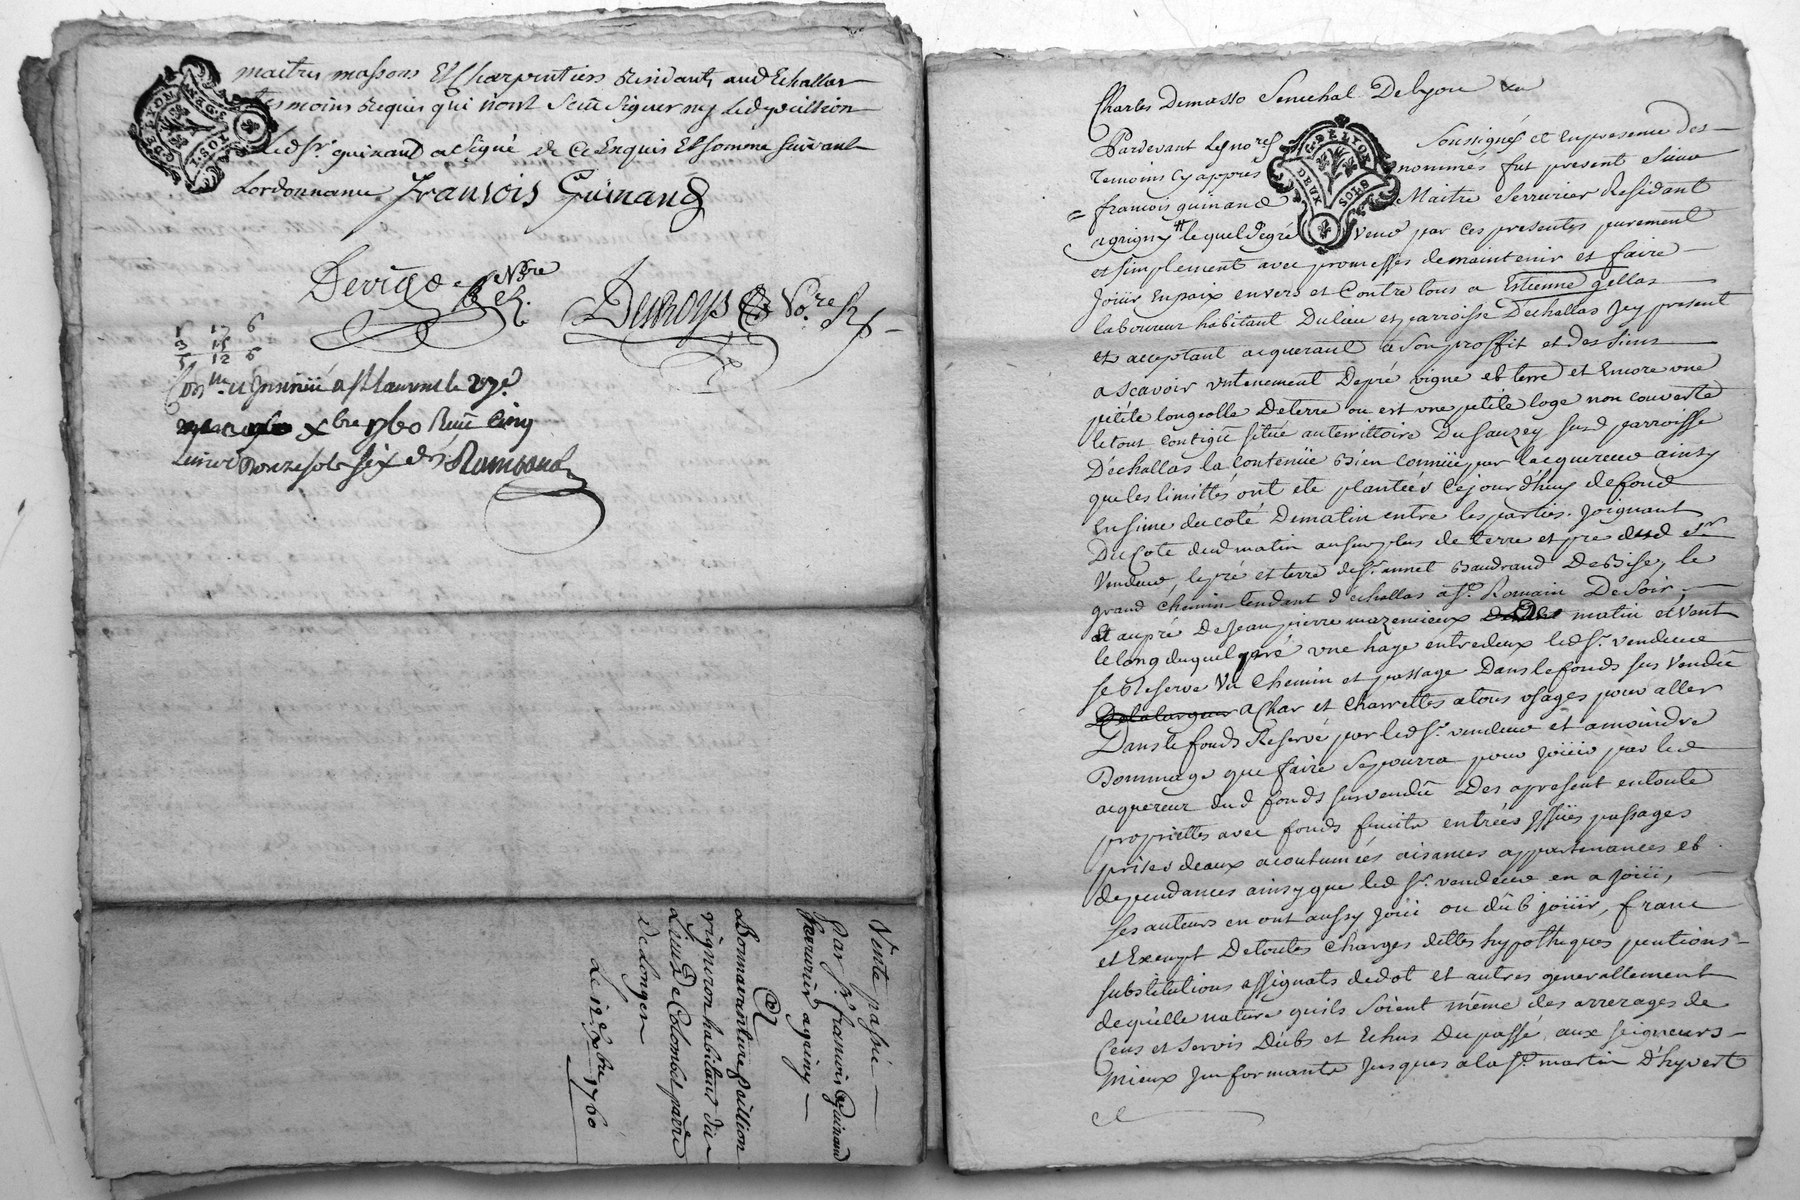 maitres massons Et Charpentiers Residants aud Echallas
temoins Requis qui n'ont Sceü Signer ny led poillion
led Sr. guinand a Signé de ce Enquis Et somme suivant
Lordonnance François Guinand
G. DE LYON
Devigo Nre
Desroys Nore
1 17 6
3 15
5 12 6
a St Laurent le 27e
xbre 1760 Reçu Cinq
Livres Douze sols six drs Rambaud
Vente passée
par Sr. francois Guinand
Serrurier agrigny
a
Bonnaventure poillion
vigneron habitant du
Lieu De Colombet parre
de Longes
Le 12e xbre 1760
Charles Demasso Senechal Delyon
Pardevant Les nores Soussignés et En presence des
temoins Cy appres nommés fut present Sieur
francois guinand Maitre Serrurier Residant
agrigny lequel degré Vend par ces presentes purement
G. DE LYON
DEUX SOLS
et simplement avec promesses demaintenir et faire
Joüir En paix envers et Contre tous a Estienne gellas
laboureur habitant Dulieu et parroisse D'echallas Jcy present
et acceptant acquerant a son proffit et des siens
a scavoir vn tenement Depré vigne et terre et Encore vne
petite longeolle De terre ou est vne petite loge non couverte
le tout Contigü situé au territtoire Dusauzey susd parroisse
D'echallas la Contenüe Bien Connüe par lacquereur ainsy
que les limittes ont ete plantées Cejourdhuy defond
En sime du coté Dematin entre les parties. Joignant
Du Coté dud matin ausurplus de terre et pre dud sr
Vendeur, le pré et terre de Sr. annet Baudrand De Bise, le
grand Chemin tendant d'echallas a St. Romain De Soir,
Et aupré De Jean pierre mazenieux matin et Vent
le long duquel pré vne haye entredeux led Sr. vendeur
se Reserve Vn Chemin et passage Dans le fonds sus Vendû
Delalargeur a Char et Charrettes a tous vsages pour aller
Dans le fonds Reservé par led Sr. vendeur et a moindre
Dommage que faire Se pourra pour Joüir par led
acquereur dud fonds susvendû Des apresent entoute
propriettes avec fonds fruits entrées Jssües passages
prises deaux acoutumées aisances appartenances et
dependances ainsy que led Sr. vendeur en a joüi,
ses auteurs en ont aussy joüi ou dûb joüir, franc
et Exempt Detoutes Charges dettes hypotheques pentions
substitutions assignats dedot et autres generallement
dequelle nature quils soient même des arrerages de
Cens et servis Dûbs et Echus Dupassé, aux seigneurs
Mieux Jnformants Jusques a la St. martin D'hyvert